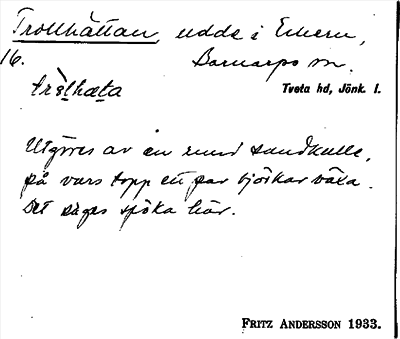 Trollhättan, udde i Emern,
16. Barnarps sn.
tròlhæta Tveta hd, Jönk. l.
Utgöres av en rund sandkulle,
på vars topp ett par björkar växa.
Det säges spöka här.
FRITZ ANDERSSON 1933.